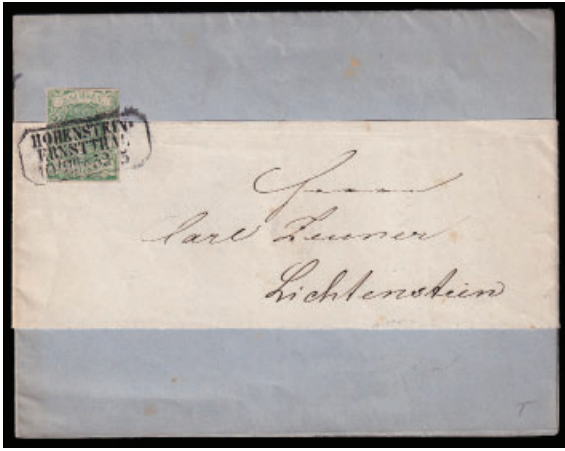 HOHENSTEIN
ERNSTTHAL
Herrn
Carl Zeuner
Lichtenstein